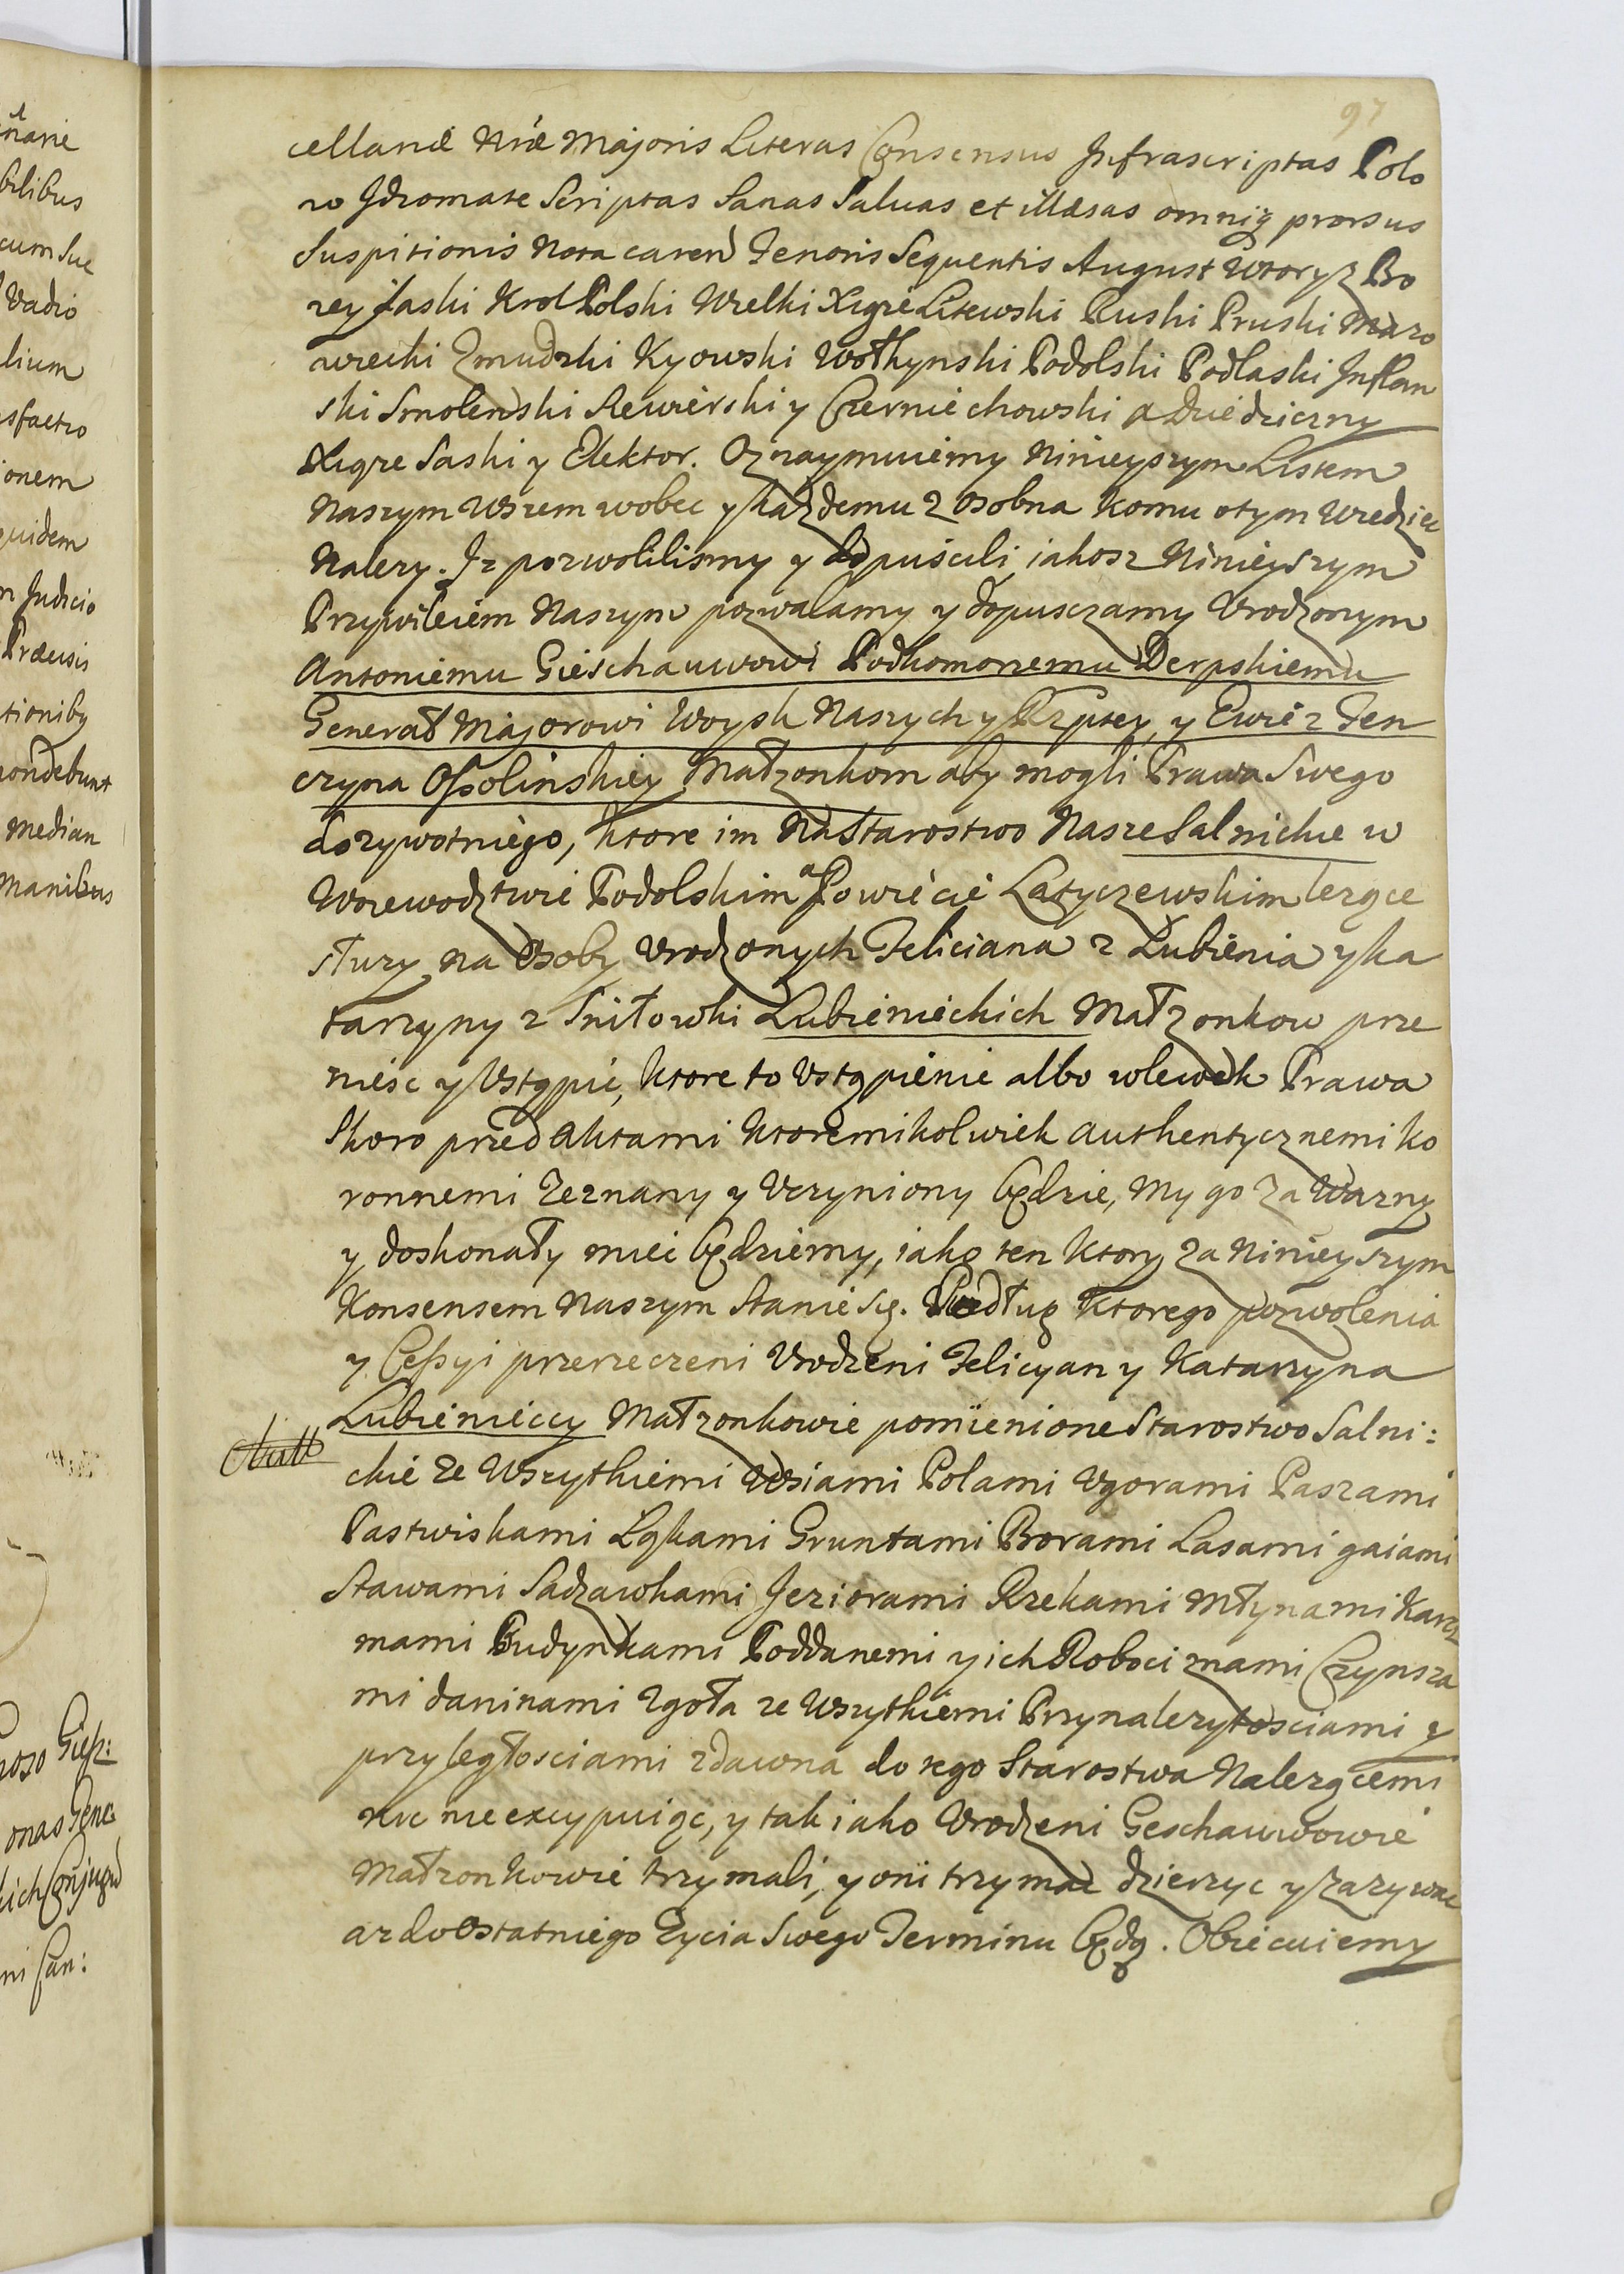 97
cellariæ Nræ Majoris Literas Consensus Infrascriptas Polo
no Idiomate Scriptas Sanas Saluas et illæsas omniq prorsus
Suspitionis Nota caren Tenoris Sequentis August Wtory z Bo
zey łaski Krol Polski Wielki Xiąże Litewski Ruski Pruski Mazo
wiecki Zmudzki Kyowski Wołhynski Podolski Podlaski Inflan
ski Smolenski Siewierski y Czerniechowski a Dziedziczny
Xiąze Saski y Elektor. Oznaymuiemy Ninieyszym Listem
Naszym Wszem wobec y każdemu z osobna komu otym Wiedziec
Nalezy. Iz pozwolilismy y dopuscili iakosz Ninieyszym
Przywileiem Naszym pozwalamy y dopusczamy Vrodzonym
Antoniemu Gieschauwowi Podkomorzemu Derpskiemu
Generał Majorowi Woysk Naszych y Rzptey, y Ewie z Ten
czyna Ossolinskiey Małzonkom aby mogli Prawa Swego
dozywotniego, ktore im Na Starostwo Nasze Salnickie w
Woiewodztwie Podolskim a Powiecie Latyczewskim lezące
słuzy, na Osoby Vrodzonych Feliciana z Lubienia y Ka
tarzyny z Sniłowki Lubienieckich Małzonkow prze
niesc y Vstąpic, ktore to Vstąpienie albo wlewek Prawa
Skoro przed Aktami ktoremikolwiek authentycznemi ko
ronnemi Zeznany y Vczyniony będzie, My go za Wazny
y doskonały miec będziemy, iako ten ktory za Ninieyszym
Konsensem Naszym Stanie się. Według ktorego pozwolenia
y Cessyi przerzeczeni Vrodzeni Felicyan y Katarzyna
Lubienieccy Małzonkowie pomienione Starostwo Salni:
ckie ze Wszytkiemi Wsiami Polami Vgorami Paszami
Pastwiskami Ląkami Gruntami Borami Lasami gaiami
Stawami Sadzawkami Jeziorami Rzekami Młynami Karcz
mami Budynkami Poddanemi y ich Robociznami Czynsza
mi daninami Zgoła ze Wszytkiemi Przynalezytosciami y
przyległosciami zdawna do tego Starostwa Nalezącemi
nic nie excypuiąc, y tak iako Vrodzeni Geschauwowie
Małzonkowie trzymali, y oni trzymac dzierzyc y zazywac
az do Ostatniego Zycia Swego Terminu będą. Obiecuiemy